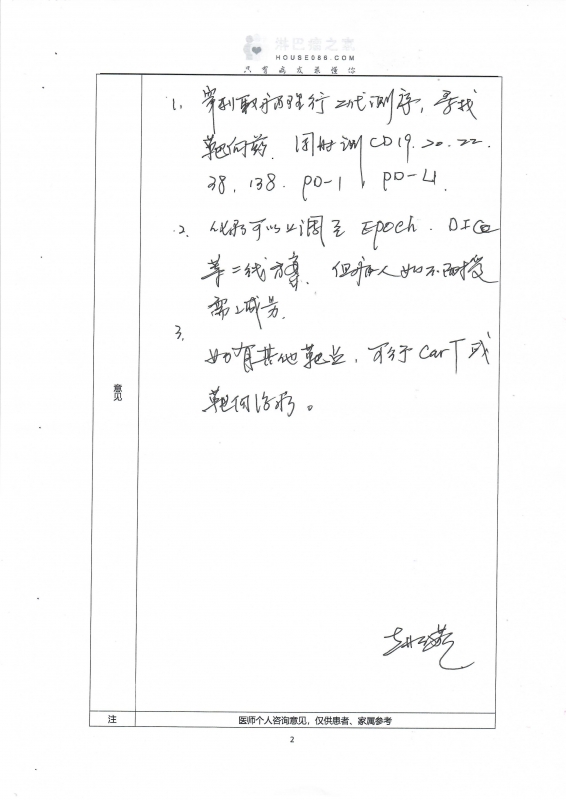 淋巴瘤之家
HOUSE086.COM
只有病友最懂你
1. 穿刺取病理行二代测序，寻找
靶向药. 同时测CD19. 20. 22.
38. 138. PD-1, PD-L1.
2. 化疗可以上调至 Epoch. DICE
等二线方案. 但病人如不耐受
需减量.
3.
如有其他靶点，可行CarT或
靶向治疗。
意见
注 医师个人咨询意见，仅供患者、家属参考
2